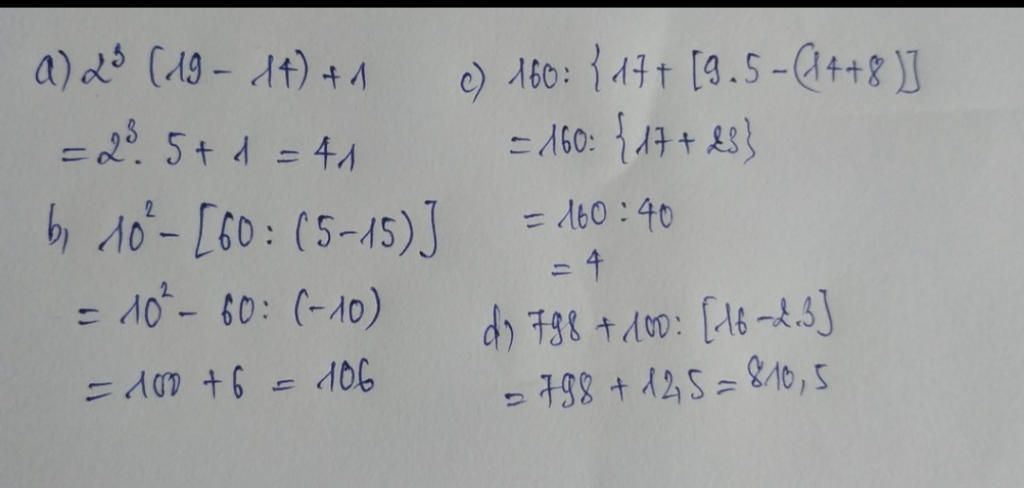 a) 2³ (19 - 14) + 1
= 2³. 5 + 1 = 41
b, 10² - [60 : (5-15)]
= 10² - 60 : (-10)
= 100 + 6 = 106
c) 160 : {17 + [9.5 - (14+8)]]
= 160 : {17 + 23}
= 160 : 40
= 4
d, 798 + 100 : [16 - 2.3]
= 798 + 12,5 = 810,5